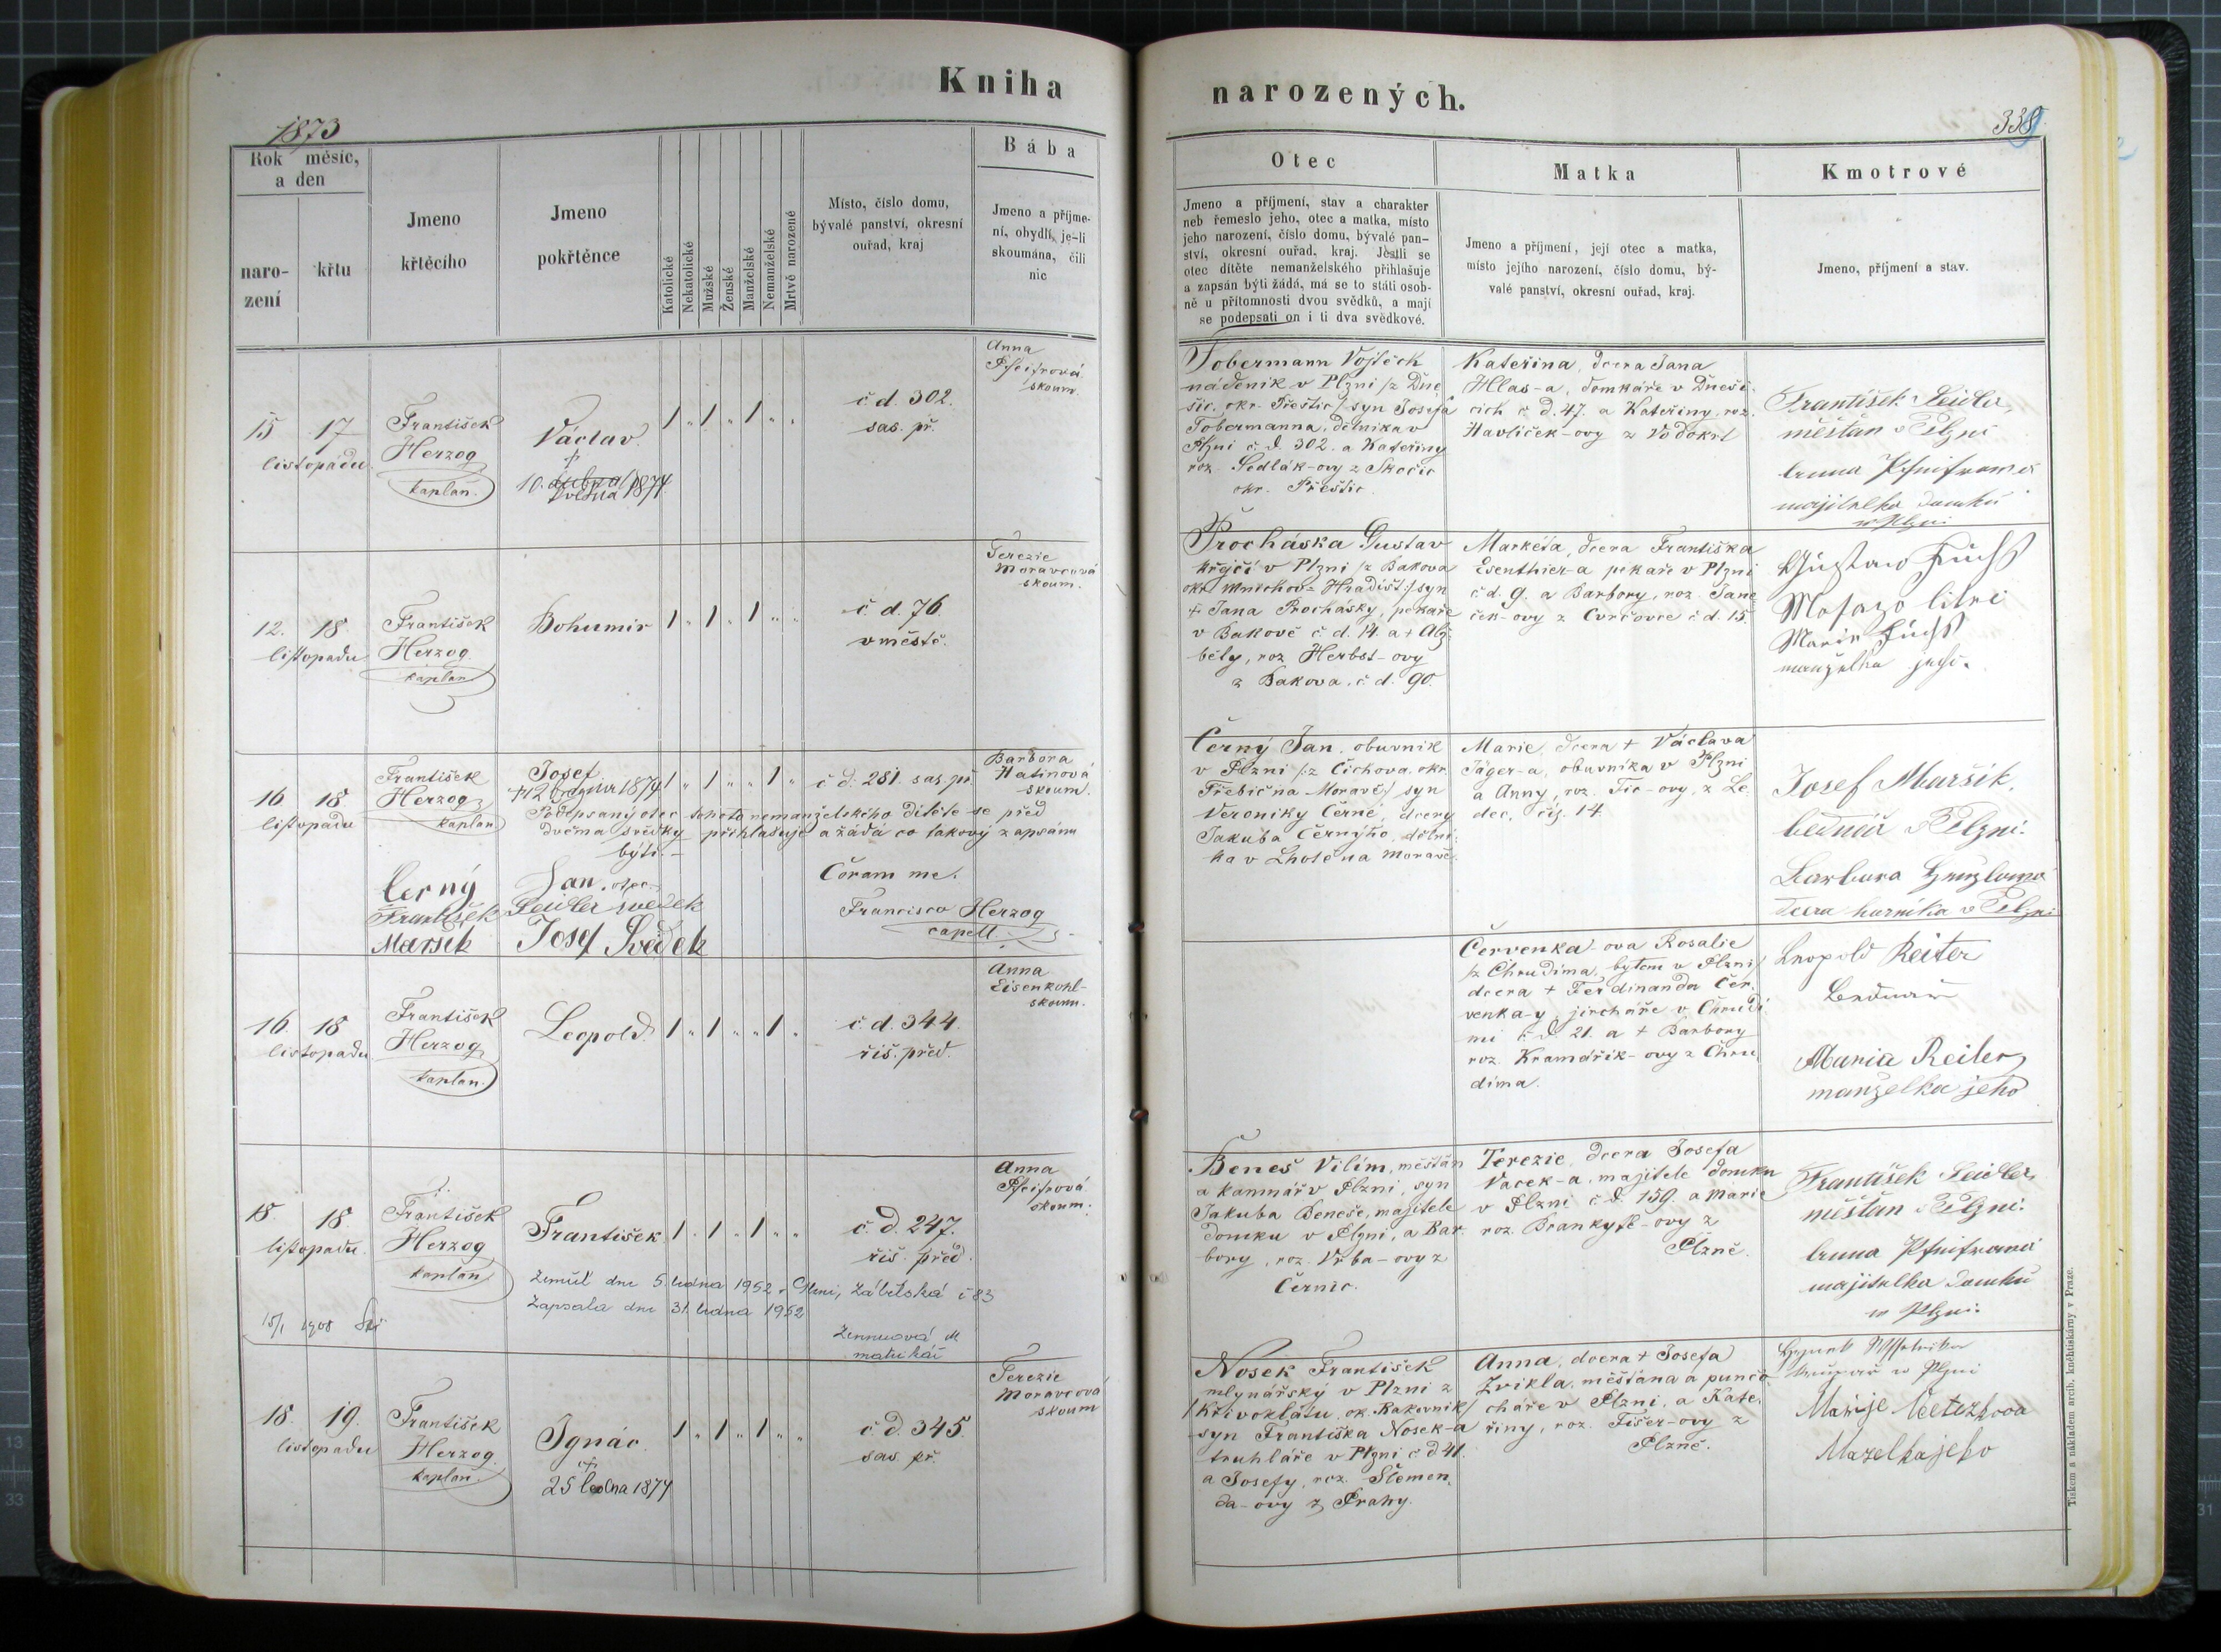 Kniha
narozených.
1873
339
Rok měsíc,
a den
naro-
zení
křtu
Jmeno
křtěcího
Jmeno
pokřtěnce
Katolické
Nekatolické
Mužské
Ženské
Manželské
Nemanželské
Mrtvě narozené
Místo, číslo domu,
bývalé panství, okresní
ouřad, kraj
Bába
Jmeno a příjme-
ní, obydlí, je-li
skoumána, čili
nic
Otec
Jmeno a příjmení, stav a charakter
neb řemeslo jeho, otec a matka, místo
jeho narození, číslo domu, bývalé pan-
ství, okresní ouřad, kraj. Jestli se
otec dítěte nemanželského přihlašuje
a zapsán býti žádá, má se to státi osob-
ně u přítomnosti dvou svědků, a mají
se podepsati on i ti dva svědkové.
Matka
Jmeno a příjmení, její otec a matka,
místo jejího narození, číslo domu, bý-
valé panství, okresní ouřad, kraj.
Kmotrové
Jmeno, příjmení a stav.
15 17
listopadu
František
Herzog
kaplan.
Václav
†
10. dubna 1874
května
1 „ 1 „ 1 „ „
č. d. 302.
sas. př.
Anna
Pfeifrová
skoum.
Tobermann Vojtěch
nádeník v Plzni /z Dne
šic. okr. Přeštic/ syn Josefa
Tobermanna, dělníka v
Plzni č. d. 302. a Kateřiny
roz. Sedlák-ovy z Skočic
okr. Přeštic.
Kateřina, dcera Jana
Hlas-a, domkáře v Dneši-
cích č. d. 47. a Kateřiny, roz.
Havlíček-ovy z Vodokrt
František Seidler,
měšťan v Plzni
Anna Pfeifrowá
majitelka domku
w Plzni
12. 18
listopadu
František
Herzog.
kaplan
Bohumír
1 „ 1 „ 1 „ „
č. d. 76
v městě.
Terezie
Moravcová
skoum.
Procháska Gustav
krejčí v Plzni /z Bakova
okr. Mnichov-Hradišt:/ syn
† Jana Procházky, pekaře
v Bakově č. d. 14. a † Alž-
běty, roz. Herbst-ovy
z Bakova, č. d. 90.
Markéta, dcera Františka
Esenthier-a pekaře v Plzni
č. d. 9. a Barbory, roz. Jane
ček-ovy z Cvrčovce č. d. 15.
Gustaw Fuchs
Marie Fuchs
manželka jeho.
16 18
listopadu
František
Herzog
kaplan
Josef
† 12 1874
1 „ 1 „ „ 1 „
č. d. 281. sas. př.
Barbora
Hatinová
skoum.
Podepsaný otec tohoto nemanželského dítěte se před
dvěma svědky přihlašuje a žádá co takový zapsánu
býti.
Černý Jan. otec
František Seidler svědek
Maršik Josef Svědek
Coram me.
Francisco Herzog
capell.
Černý Jan, obuvník
v Plzni /:z Čichova, okr.
Třebíč na Moravě/ syn
Veroniky Černé, dcery
Jakuba Černýho, dělní-
ka v Lhotě na Moravě.
Marie, dcera † Václava
Jäger-a, obuvníka v Plzni
a Anny, roz. Fic-ovy, z Le-
dec, čís. 14.
Josef Maršik,
bednář v Plzni.
Barbora
dcera v Plzni
16 18
listopadu
František
Herzog
kaplan.
Leopold
1 „ 1 „ „ 1 „
č. d. 344.
řiš. před.
Anna
Eisenkohl-
skoum.
Červenka-ova Rosalie
/z Chrudima, bytem v Plzni/
dcera † Ferdinanda Čer-
venka-y, jircháře v Chrudi
mi č. d. 21. a † Barbory
roz. Kramářik-ovy z Chru
dima.
Leopold Reiter
Bednář
Maria Reiter
manželka jeho
15. 18
listopadu.
František
Herzog
kaplan
František
1 . 1 „ 1 „ „
č. d. 247.
řiš. před.
Anna
Pfeifrová
skoum.
Zemřel dne 5. ledna 1952 v Plzni, Zábělská č 83
Zapsala dne 31. ledna 1952
M
matrikář
15/1 1908
Beneš Vilím, měšťan
a kamnář v Plzni, syn
Jakuba Beneše, majitele
domku v Plzni, a Bar-
bory, roz. Vrba-ovy z
Černic.
Terezie, dcera Josefa
Vacek-a, majitele domku
v Plzni č. d. 159. a Marie
roz. Brankyřl-ovy z
Plzně.
František Seidler
měšťan v Plzni.
Anna Pfeifrowá
majitelka domku
w Plzni.
18. 19.
listopadu
František
Herzog.
kaplan.
Ignác
†
25 ledna 1874
1 „ 1 „ 1 „ „
č. d. 345.
sas. př.
Terezie
Moravcová
skoum
Nosek František
mlynářský v Plzni z
/Křivoklátu, ok. Rakovník/
syn Františka Nosek-a
truhláře v Plzni č. d. 41.
a Josefy, roz. Slemen-
da-ovy z Prahy.
Anna, dcera † Josefa
Zvikla, měšťana a punčo-
cháře v Plzni, a Kate-
řiny, roz. Fišer-ovy z
Plzně.
w Plzni
Marije
Mazelka jeho
Tiskem a nákladem arcib. kněhtiskárny v Praze.